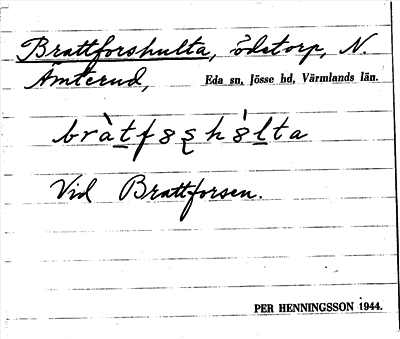 Brattforshulta, ödetorp, N.
Ämterud, Eda sn, Jösse hd, Värmlands län.
Vid Brattforsen.
PER HENNINGSSON 1944.